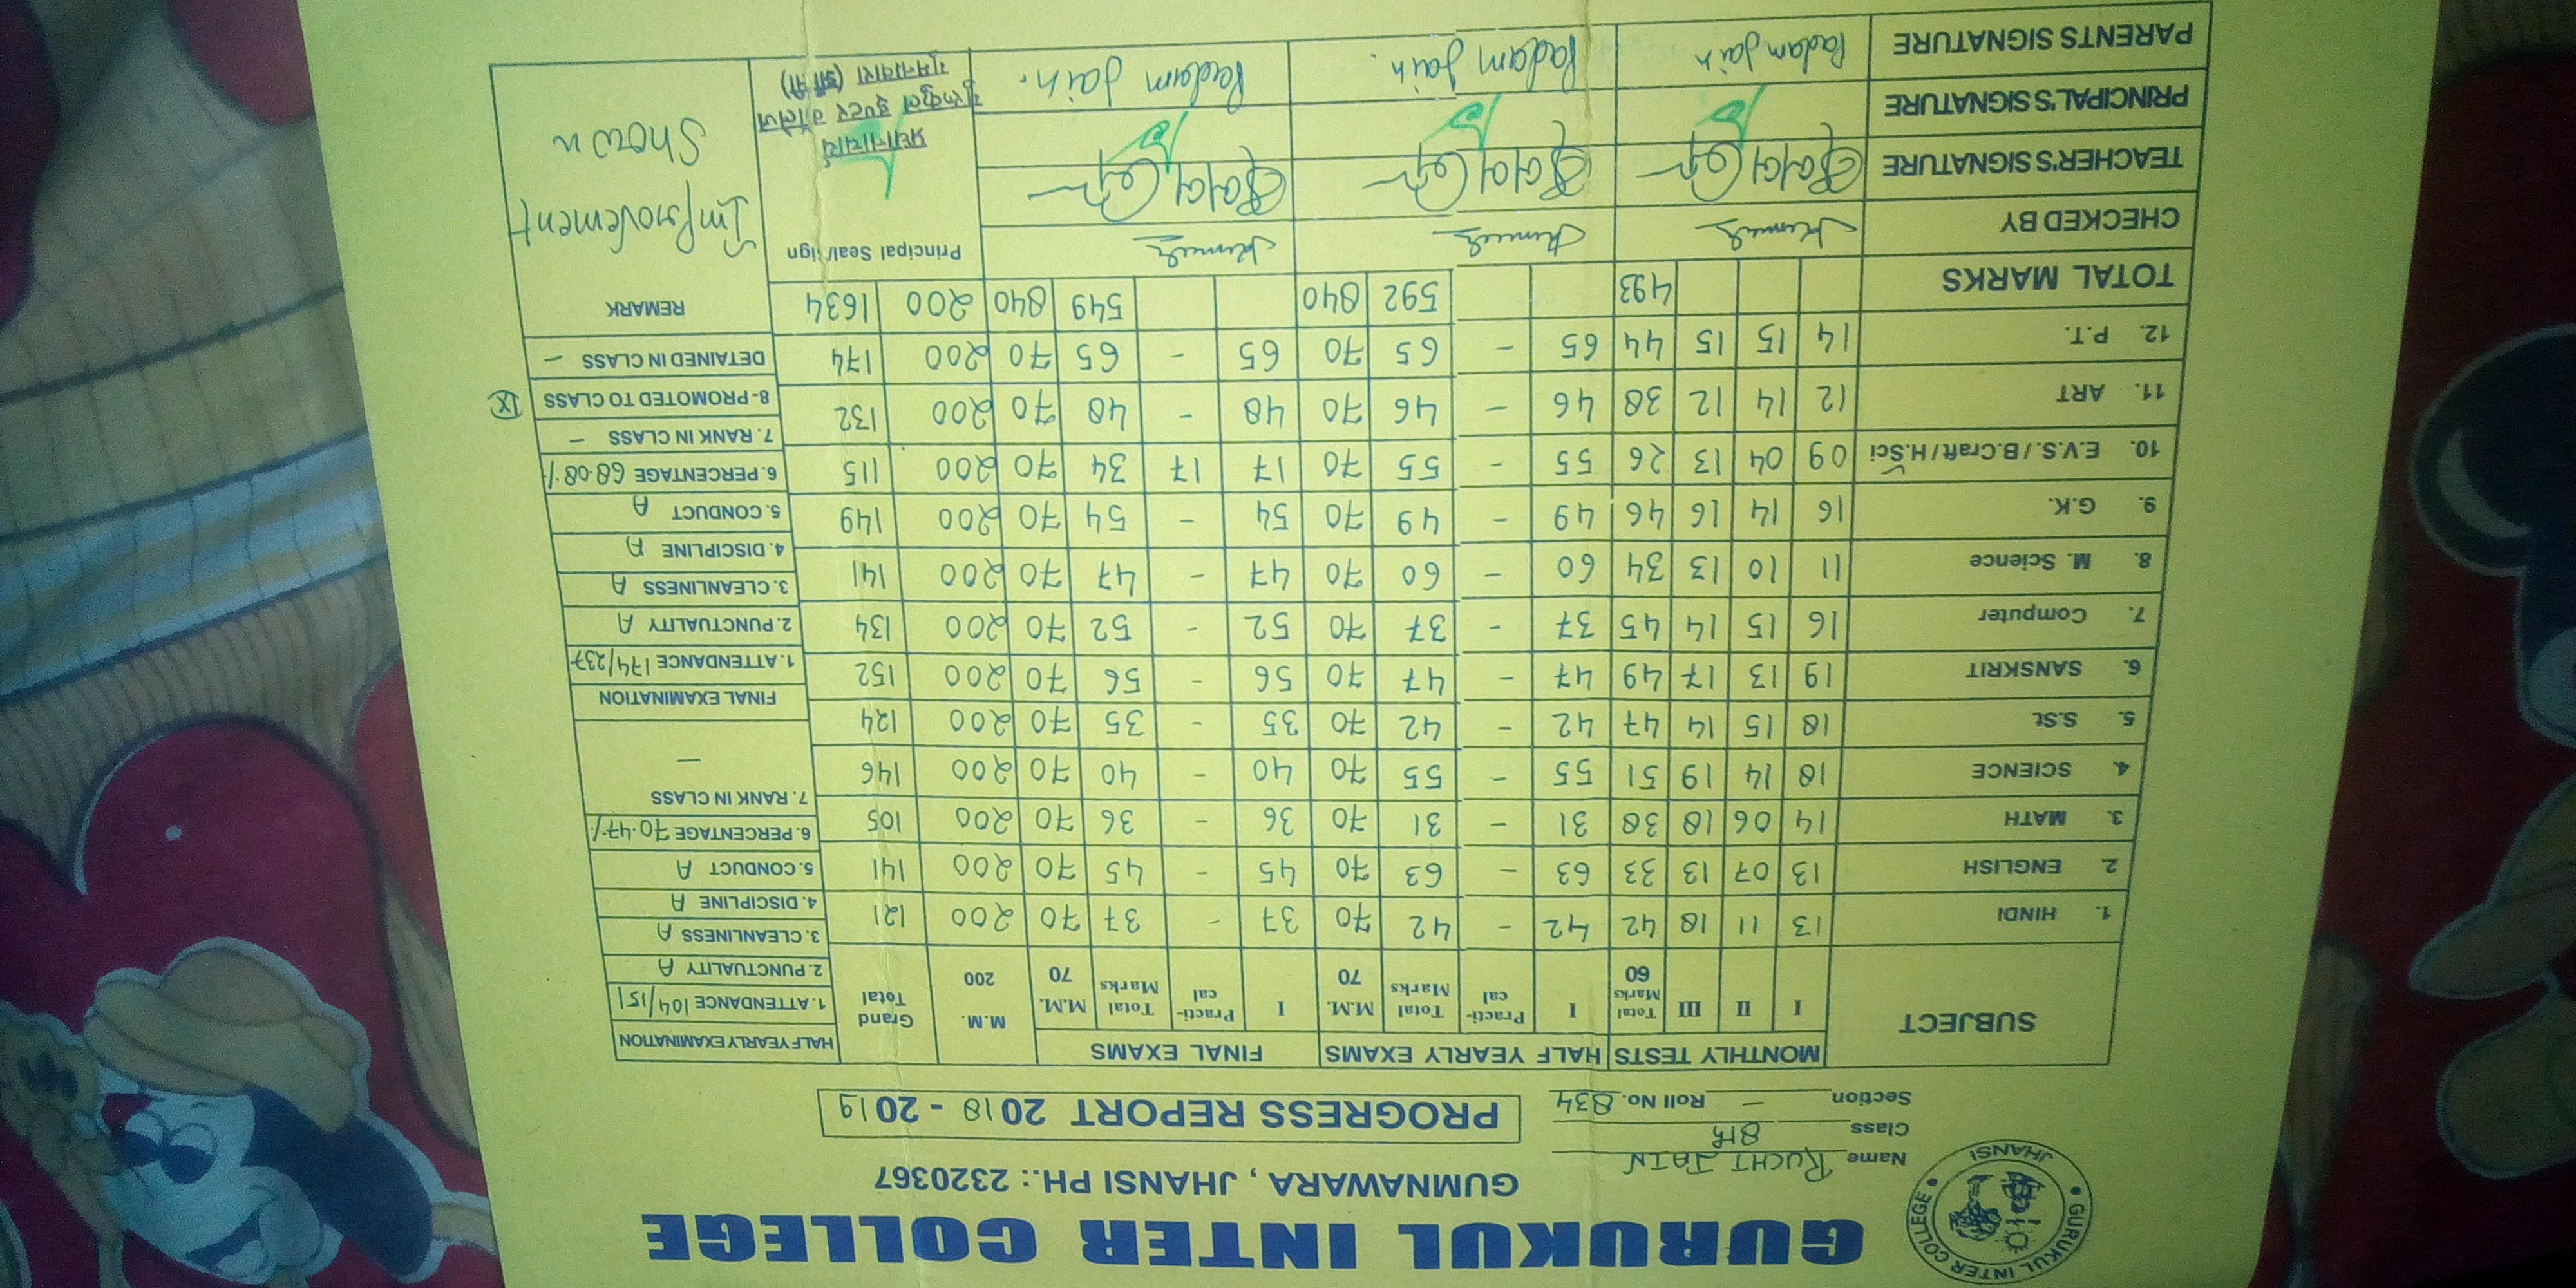 GURUKUL INTER COLLEGE
GUMNAWARA, JHANSI PH.: 2320367
• GURUKUL INTER COLLEGE • JHANSI
Name RUCHI JAIN
Class 8th
Section — Roll No. 834
PROGRESS REPORT 2018 - 2019
SUBJECT MONTHLY TESTS HALF YEARLY EXAMS FINAL EXAMS M.M. 200 Grand Total
I II III Total Marks 60 I Practi-cal Total Marks M.M. 70 I Practi-cal Total Marks M.M. 70
1. HINDI 13 11 18 42 42 - 42 70 37 - 37 70 200 121
2. ENGLISH 13 07 13 33 63 - 63 70 45 - 45 70 200 141
3. MATH 14 06 18 38 31 - 31 70 36 - 36 70 200 105
4. SCIENCE 18 14 19 51 55 - 55 70 40 - 40 70 200 146
5. S.St. 18 15 14 47 42 - 42 70 35 - 35 70 200 124
6. SANSKRIT 19 13 17 49 47 - 47 70 56 - 56 70 200 152
7. Computer 16 15 14 45 37 - 37 70 52 - 52 70 200 134
8. M. Science 11 10 13 34 60 - 60 70 47 - 47 70 200 141
9. G.K. 16 14 16 46 49 - 49 70 54 - 54 70 200 149
10. E.V.S. / B.Craft / H.Sci 09 04 13 26 55 - 55 70 17 17 34 70 200 115
11. ART 12 14 12 38 46 - 46 70 48 - 48 70 200 132
12. P.T. 14 15 15 44 65 - 65 70 65 - 65 70 200 174
TOTAL MARKS 493 592 840 549 840 200 1634
CHECKED BY
TEACHER'S SIGNATURE
PRINCIPAL'S SIGNATURE
PARENTS SIGNATURE Padam Jain Padam Jain. Padam Jain.
HALF YEARLY EXAMINATION
1. ATTENDANCE 104/151
2. PUNCTUALITY A
3. CLEANLINESS A
4. DISCIPLINE A
5. CONDUCT A
6. PERCENTAGE 70.47%
7. RANK IN CLASS
—
FINAL EXAMINATION
1. ATTENDANCE 174/237
2. PUNCTUALITY A
3. CLEANLINESS A
4. DISCIPLINE A
5. CONDUCT A
6. PERCENTAGE 68.08%
7. RANK IN CLASS —
8- PROMOTED TO CLASS IX
DETAINED IN CLASS —
REMARK
Improvement
Shown
Principal Seal/Sign
प्रधानाचार्य
गुरुकुल इण्टर कॉलेज
गुमनावारा (झाँसी)